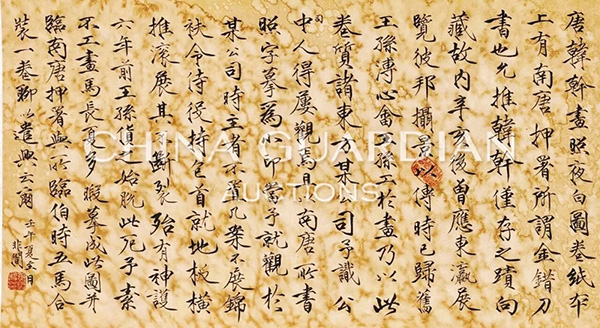 唐韓幹畫照夜白圖卷紙本
上有南唐押署所謂金錯刀
書也允推韓幹僅存之蹟向
藏故內辛亥後曾應東瀛展
覽彼邦攝景以傳時已歸舊
王孫溥心畬王孫工於畫乃以此
卷質諸東方某公司予識公
司中人得屢觀南唐所書
昭字摹為小印嘗予就觀於
某公司時主者不置几案不展錦
袱令侍役持卷首就地板橫
推滾展其不斷裂殆有神護
六年前王孫貨去始脫此厄予素
不工畫馬長夏多暇摹成此圖并
臨南唐押署與所臨伯時五馬合
裝一卷聊以遣興云爾
壬午夏六月
非闇
CHINA GUARDIAN
AUCTIONS